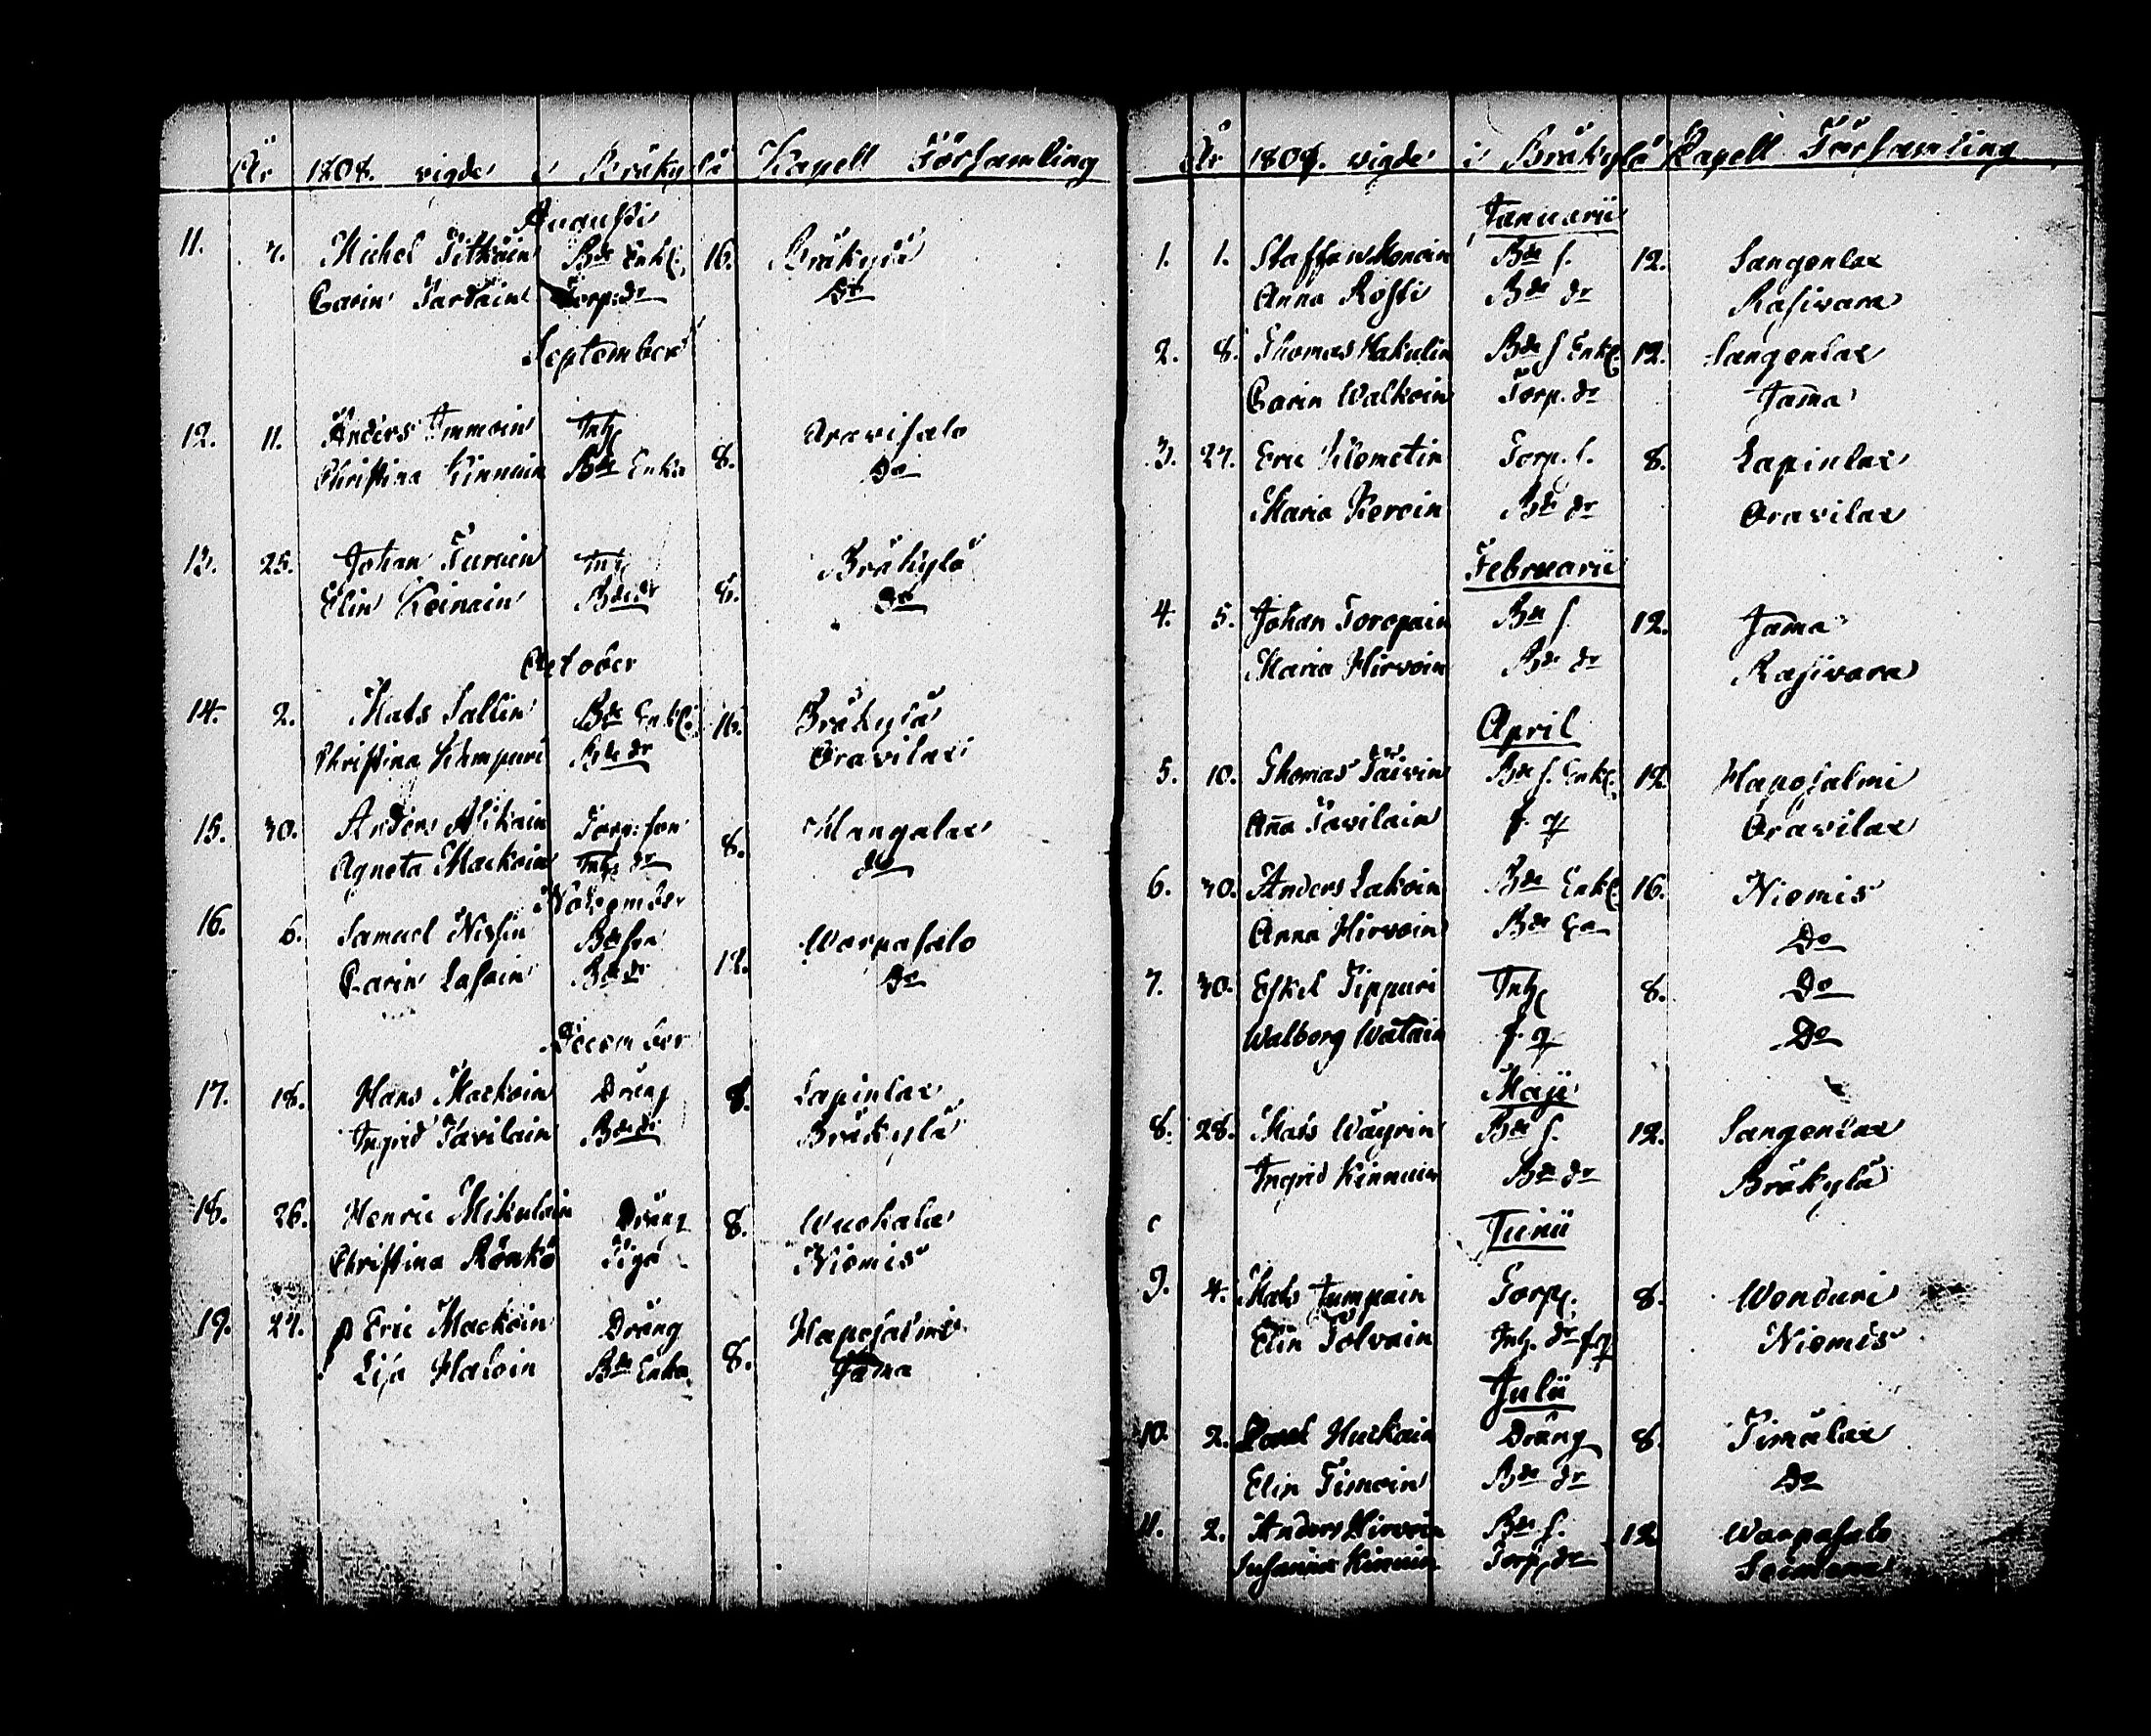 År 1808. vigde i Bräkylä Kapell Församling
Augusti
11. 7. Michel Pitkäin Bde Enkl. 16. Bräkylä
Carin Tarvain Torp: dr Do
September
12. 11. Anders Immoin Inh. Oravisalo
Christina Kinnuin Bde Enka 8. Do
13. 25. Johan Turuin Inh. Bräkylä
Elin Keinäin Bde dr 8. Do
October
14. 2. Mats Sallin Bde Enkl. 16. Bräkylä
Christina Kämpuri Bde dr Oravilax
15. 30. Anders Mikain Torp: son 8. Mangalax
Agneta Mackoin Inh. dr do
November
16. 6. Samuel Nissin Bde son 12. Warpasalo
Carin Lasoin Bde dr Do
December
17. 18. Hans Mackoin Dräng 8. Lapinlax
Ingrid Pavilain Bde dr Bräkylä
18. 26. Henric Mikulain Dräng 8. Wuokala
Christina Rönkö Piga Niemis
19. 27. Eric Mackoin Dräng 8. Haposalmi
Lisa Haloin Bde Enka Jama
År 1809. vigde i Bräkylä Kapell Församling
Januarii
1. 1. Staffan Monoin Bde s. 12. Sangenlax
Anna Rossi Bde dr Rasivara
2. 8. Thomas Hakulin Bde s Enkl. 12. Sangenlax
Carin Walkoin Torp. dr Jama
3. 27. Eric Klemetin Torp. s. 8. Lapinlax
Maria Keroin Bde dr Oravilax
Februarii
4. 5. Johan Toropain Bde s. 12. Jama
Maria Hirvoin Bde dr Rasivara
April
5. 10. Thomas Päivin Bde s. Enkl. 12. Haposalmi
Aña Pavilain f. q. Oravilax
6. 30. Anders Lakoin Bde Enkl. 16. Niemis
Anna Hirvoin Bde Ea Do
7. 30. Eskel Tippuri Inh. 8. Do
Walborg Watain f. q. Do
Maji
8. 28. Mats Wäyrin Bde s. 12. Sangenlax
Ingrid Kinnuin Bde dr Bräkylä
Junii
9. 4. Mats Jumpain Torp. 8. Wonduri
Elin Tolvain Inh. dr f. q Niemis
Julii
10. 2. Huckain Dräng 8. Pimälax
Elin Timoin Bde dr Do
11. 2. Anders Hirvoin Bde s. 12 Warpasalo
Susanna Kinnuin Torp. dr